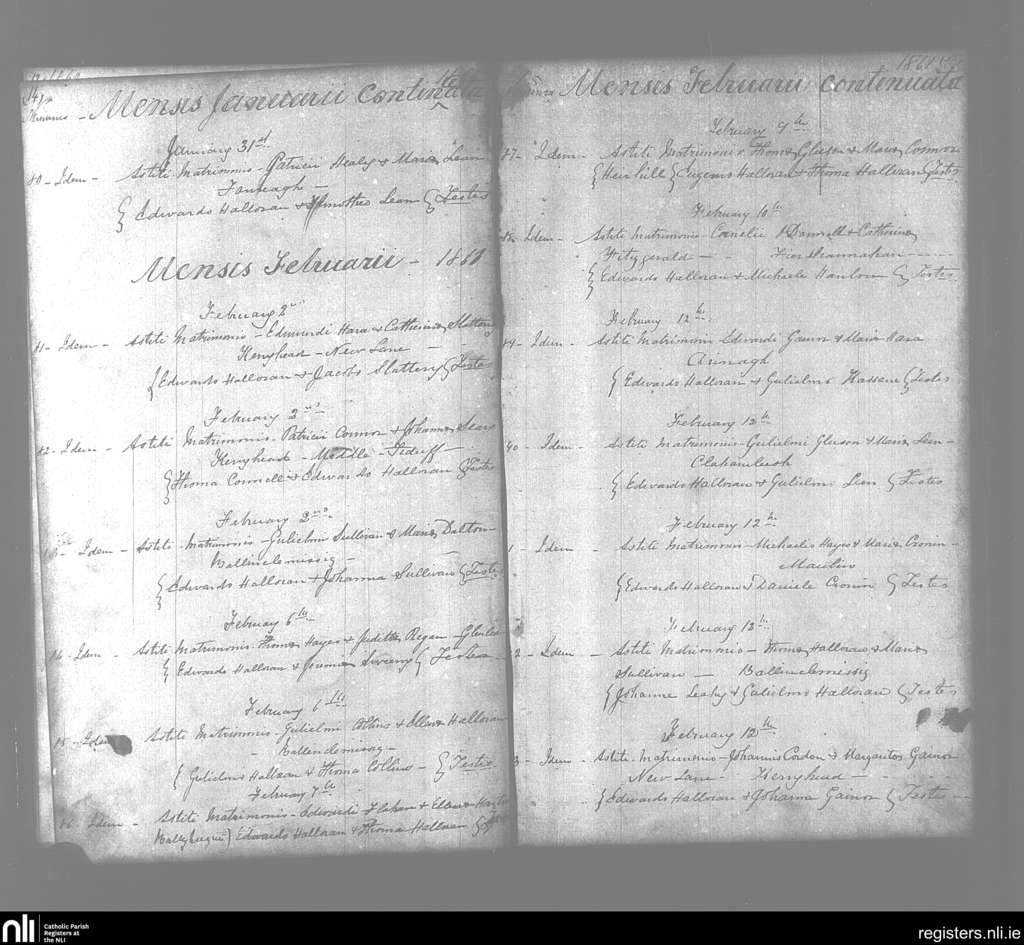 Mensis Januarii Continuata
January 31st
80 - Idem - Astiti Matrimonio - Patricii Healy & Maria Lean
Edwardo Halloran & Timotheo Lean } Testes
Mensis Februarii - 1861
February 2nd
81 - Idem - Astiti Matrimonio - Edmundi Hara & Catherina Slattery
Kerryhead - New Lane
{ Edwardo Halloran & Jacobo Slattery { Testes
February 2nd
82 - Idem - Astiti Matrimonio - Patricii Connor & Johanna
Kerryhead - Middle - Tiduff
{ Thoma Connell & Edwardo Halloran { Testes
February 2nd
Idem - Astiti Matrimonio - Gulielmi Sullivan & Maria Dalton
Ballinclemissig
{ Edwardo Halloran & Johanna Sullivan { Testes
February 6th
Idem - Astiti Matrimonio - Thoma Hayes & Juditha Regan - Glenlea
{ Edwardo Halloran & Sweeny { Testes
February 6th
Idem Astiti Matrimonio - Gulielmi Collins & Ellena Halloran
Ballinclemissig
{ Gulielmo Halloran & Thoma Collins - { Testes
February 7th
Idem - Astiti Matrimonio - Edwardi & Ellena
Edwardo Halloran & Thoma Halloran
1861
Mensis Februarii Continuata
February 9th
87 - Idem - Astiti Matrimonio Thoma Gleeson & Maria Connor
{ Heirhill { Eugenio Halloran & Thoma Halloran { Testes
February 10th
Idem - Astiti Matrimonio - Cornelii O'Donnell & Catherina
Fitzgerald
{ Edwardo Halloran & Michaele Hanlon { Testes
February 12th
Idem - Astiti Matrimonio Edwardi Gainor & Maria Hara
Arinagh
{ Edwardo Halloran & Gulielmo Hassene { Testes
February 12th
90 - Idem - Astiti Matrimonio - Gulielmi Gleeson & Maria Leen -
Clahanleesh
{ Edwardo Halloran & Gulielmo Leen { Testes
February 12th
Idem - Astiti Matrimonio - Michaelis Hayes & Maria Cronin -
Maulin
{ Edwardo Halloran & Daniele Cronin { Testes
February 12th
Idem - Astiti Matrimonio - Thoma Halloran & Maria
Sullivan - Ballinclemissig
{ Johanne Leahy & Gulielmo Halloran { Testes
February 12th
Idem - Astiti Matrimonio - Johannis Cordon & Margarita Gainor
New Lane - Kerryhead -
{ Edwardo Halloran & Johanna Gainor { Testes
nli
Catholic Parish
Registers at
the NLI
registers.nli.ie